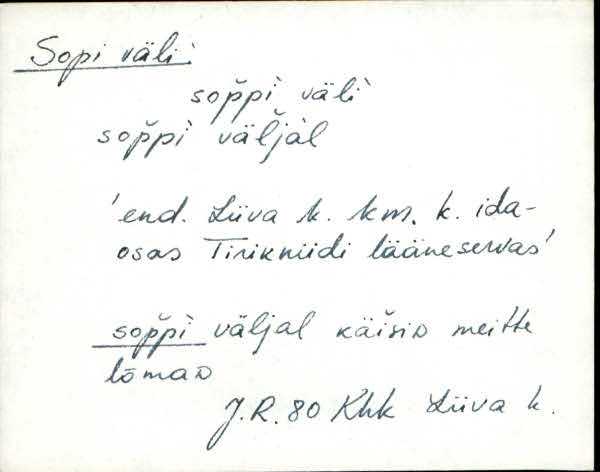 Sopi väli:
sop̆pì välì
sop̆pì väl̆jàl
'end. Liiva k. km. k. ida-
osas Tirikniidi lääneservas'
sop̆pì väljal käišiᴅ meitte
lōmaᴅ
J.R. 80 Khk Liiva k.